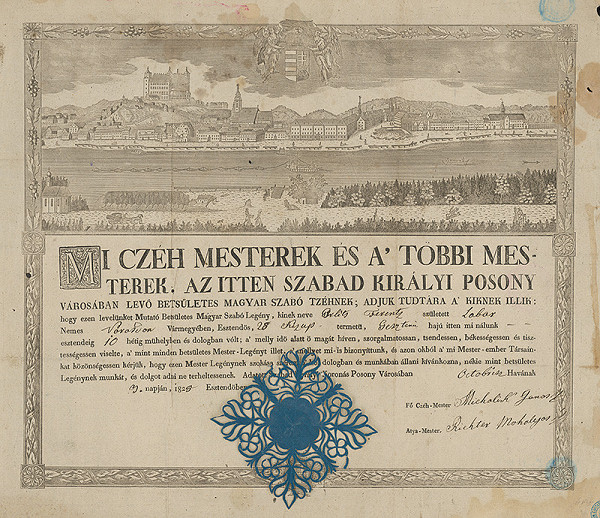 MI CZÉH MESTEREK ÉS A' TÖBBI MES-
TEREK, AZ ITTEN SZABAD KIRÁLYI POSONY
VÁROSÁBAN LEVŐ BETSÜLETES MAGYAR SZABÓ TZÉHNEK; ADJUK TUDTÁRA A' KIKNEK ILLIK:
hogy ezen levelünket Mutató Betsületes Magyar Szabó Legény, kinek neve Ferentz született
Nemes Vármegyében, Esztendős, 28 termetű, hajú itten mi nálunk
esztendeig 10 hétig műhelyben és dologban vólt; a' melly idő alatt ő magát híven, szorgalmatossan, tsendessen, békességessen és tisz-
tességessen viselte, a' mint minden betsületes Mester-Legényt illet, a' mellyet mi-is bizonyíttunk, és azon okból a' mi Mester-ember Társain-
kat közönségessen kérjük, hogy ezen Mester Legénynek szokása dologban és munkában állani kívánkozna, nékie mint betsületes
Legénynek munkát, és dolgot adni ne terheltessenek. Adatott Koronás Posony Városában Octóber Havának
3. napján, 1829 Esztendőben.
Fő Czéh-Mester Michalik Janos
Atya-Mester. Richter